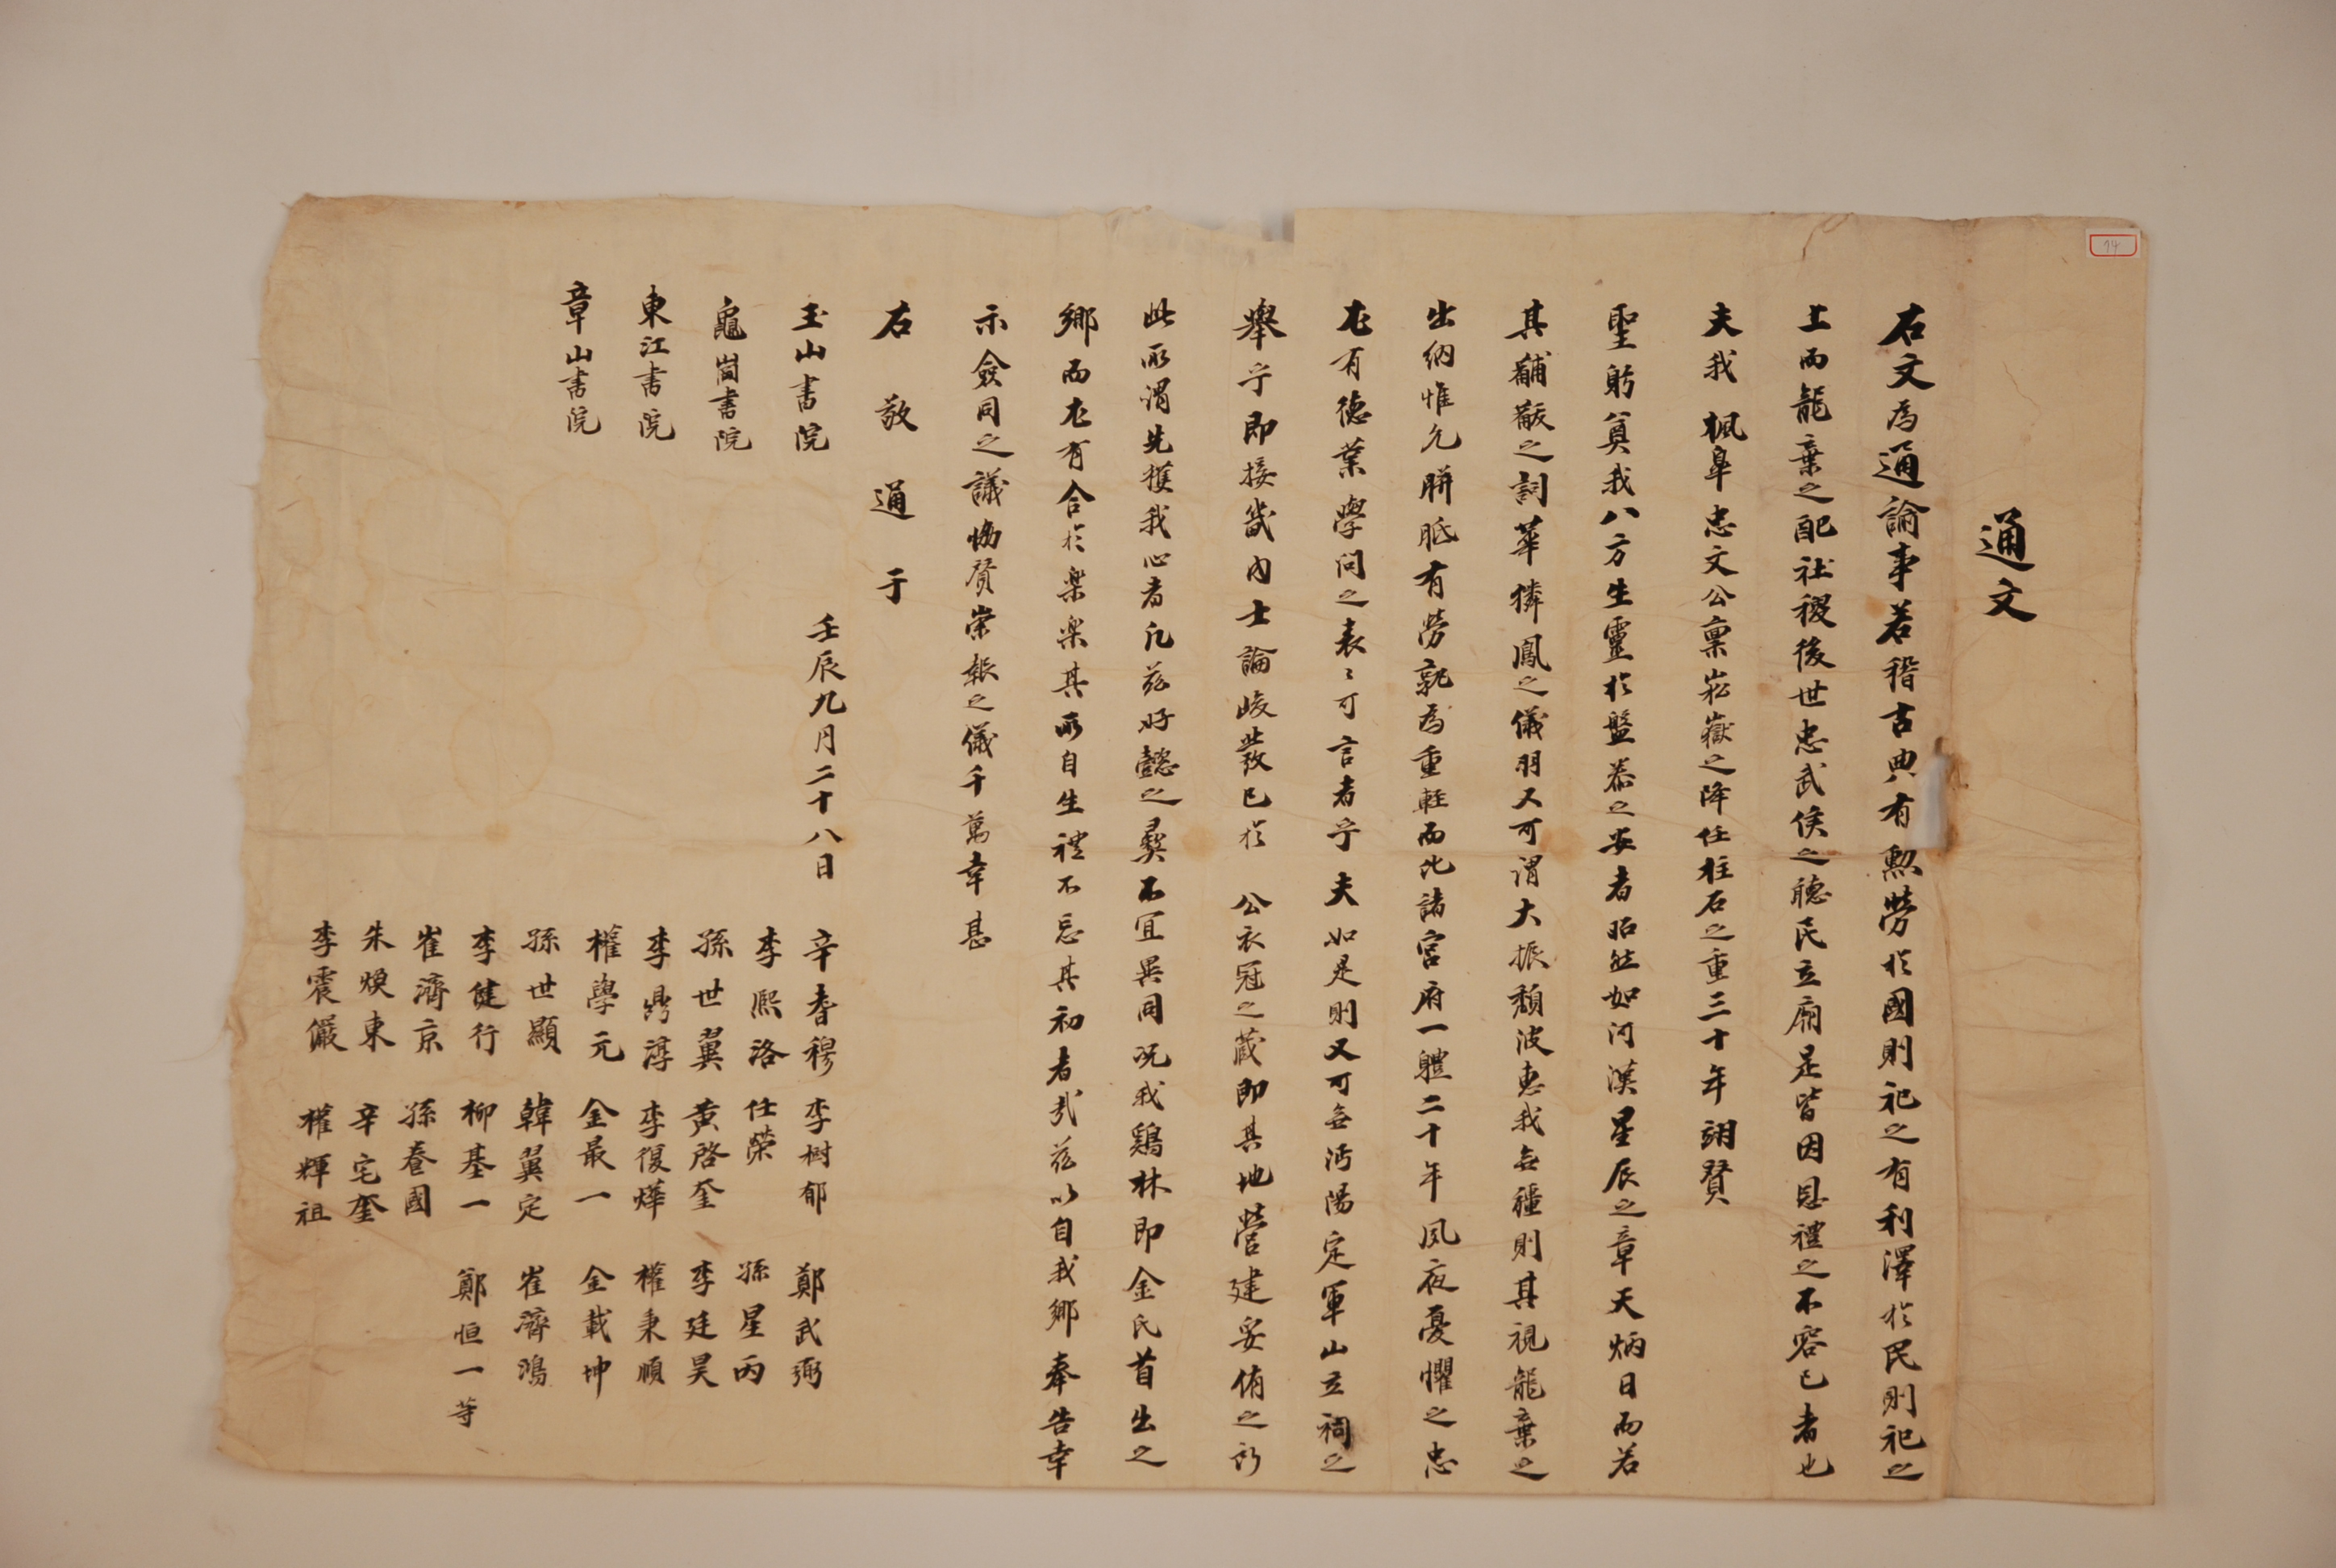 通文
右文爲通諭事若稽古典有勲勞於國則祀之有利澤於民則祀之
土而龍棄之配社稷後世忠武侯之聽民立廟是皆因恩禮之不容已者也
夫我 楓皐忠文公稟崧嶽之降任柱石之重三十年翊賛
聖躬奠我八方生靈於盤泰之安者昭然如河漢星辰之章天炳日而若
其黼黻之詞華獜鳳之儀羽又可謂大振頹波惠我無疆則其視龍棄之
出納惟允胼胝有勞孰爲重輕而比諸宮府一軆二十年夙夜憂懼之忠
尤有德業學問之表〻可言者乎夫如是則又可無沔陽定軍山立祠之
擧乎即接畿內士論峻發已於 公衣冠之蔵即其地營建妥侑之所
此所謂先獲我心者凡玆好懿之彛不宜異同况我鷄林即金氏首出之
鄕而尤有合於樂樂其所自生禮不忘其初者哉玆以自我鄕奉告幸
示僉同之議協賛崇報之儀千萬幸甚
右敬通于
玉山書院
龜崗書院
東江書院
章山書院
壬辰九月二十八日
辛春穆 李樹郁 鄭武弼
李熙洛 任榮 孫星丙
孫世翼 黃啓奎 李廷昊
李鼎淳 李復燁 權秉順
權學元 金最一 金載坤
孫世顯 韓翼定 崔濟鴻
李健行 柳基一 鄭恒一等
崔濟京 孫養國
朱煥東 辛宅奎
李震儼 權輝祖